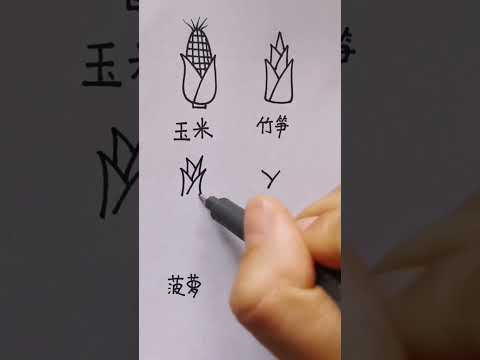 玉米 竹笋
菠萝